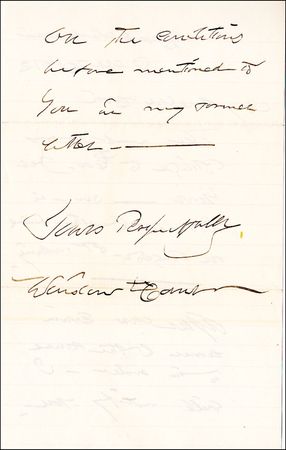 on the conditions
before mentioned to
you in my former
letter —
Yours Respectfully
Winslow Homer